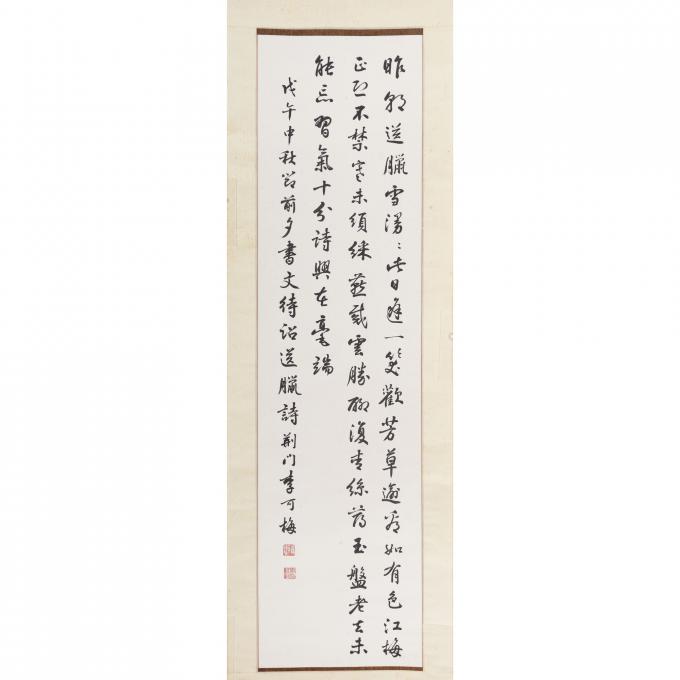 昨朝送臘雪漫〻此日逢一笑歡芳草遙看如有色江梅
正恐不禁寒未須綵燕戴雲勝聊復青絲薦玉盤老去未
能忘習氣十分詩興在毫端
戊午中秋節前夕書文待詔送臘詩荆门李可梅